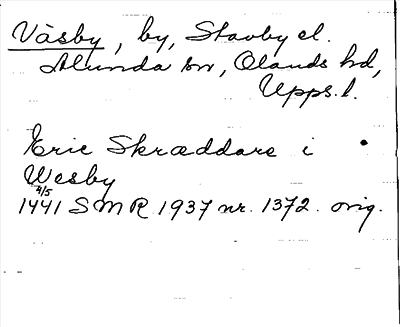 Väsby, by, Stavby el.
Alunda sn, Olands hd,
Upps. l.
Eric Skræddare i
Wesby
4/5
1441 SMR 1937 nr. 1372. orig.